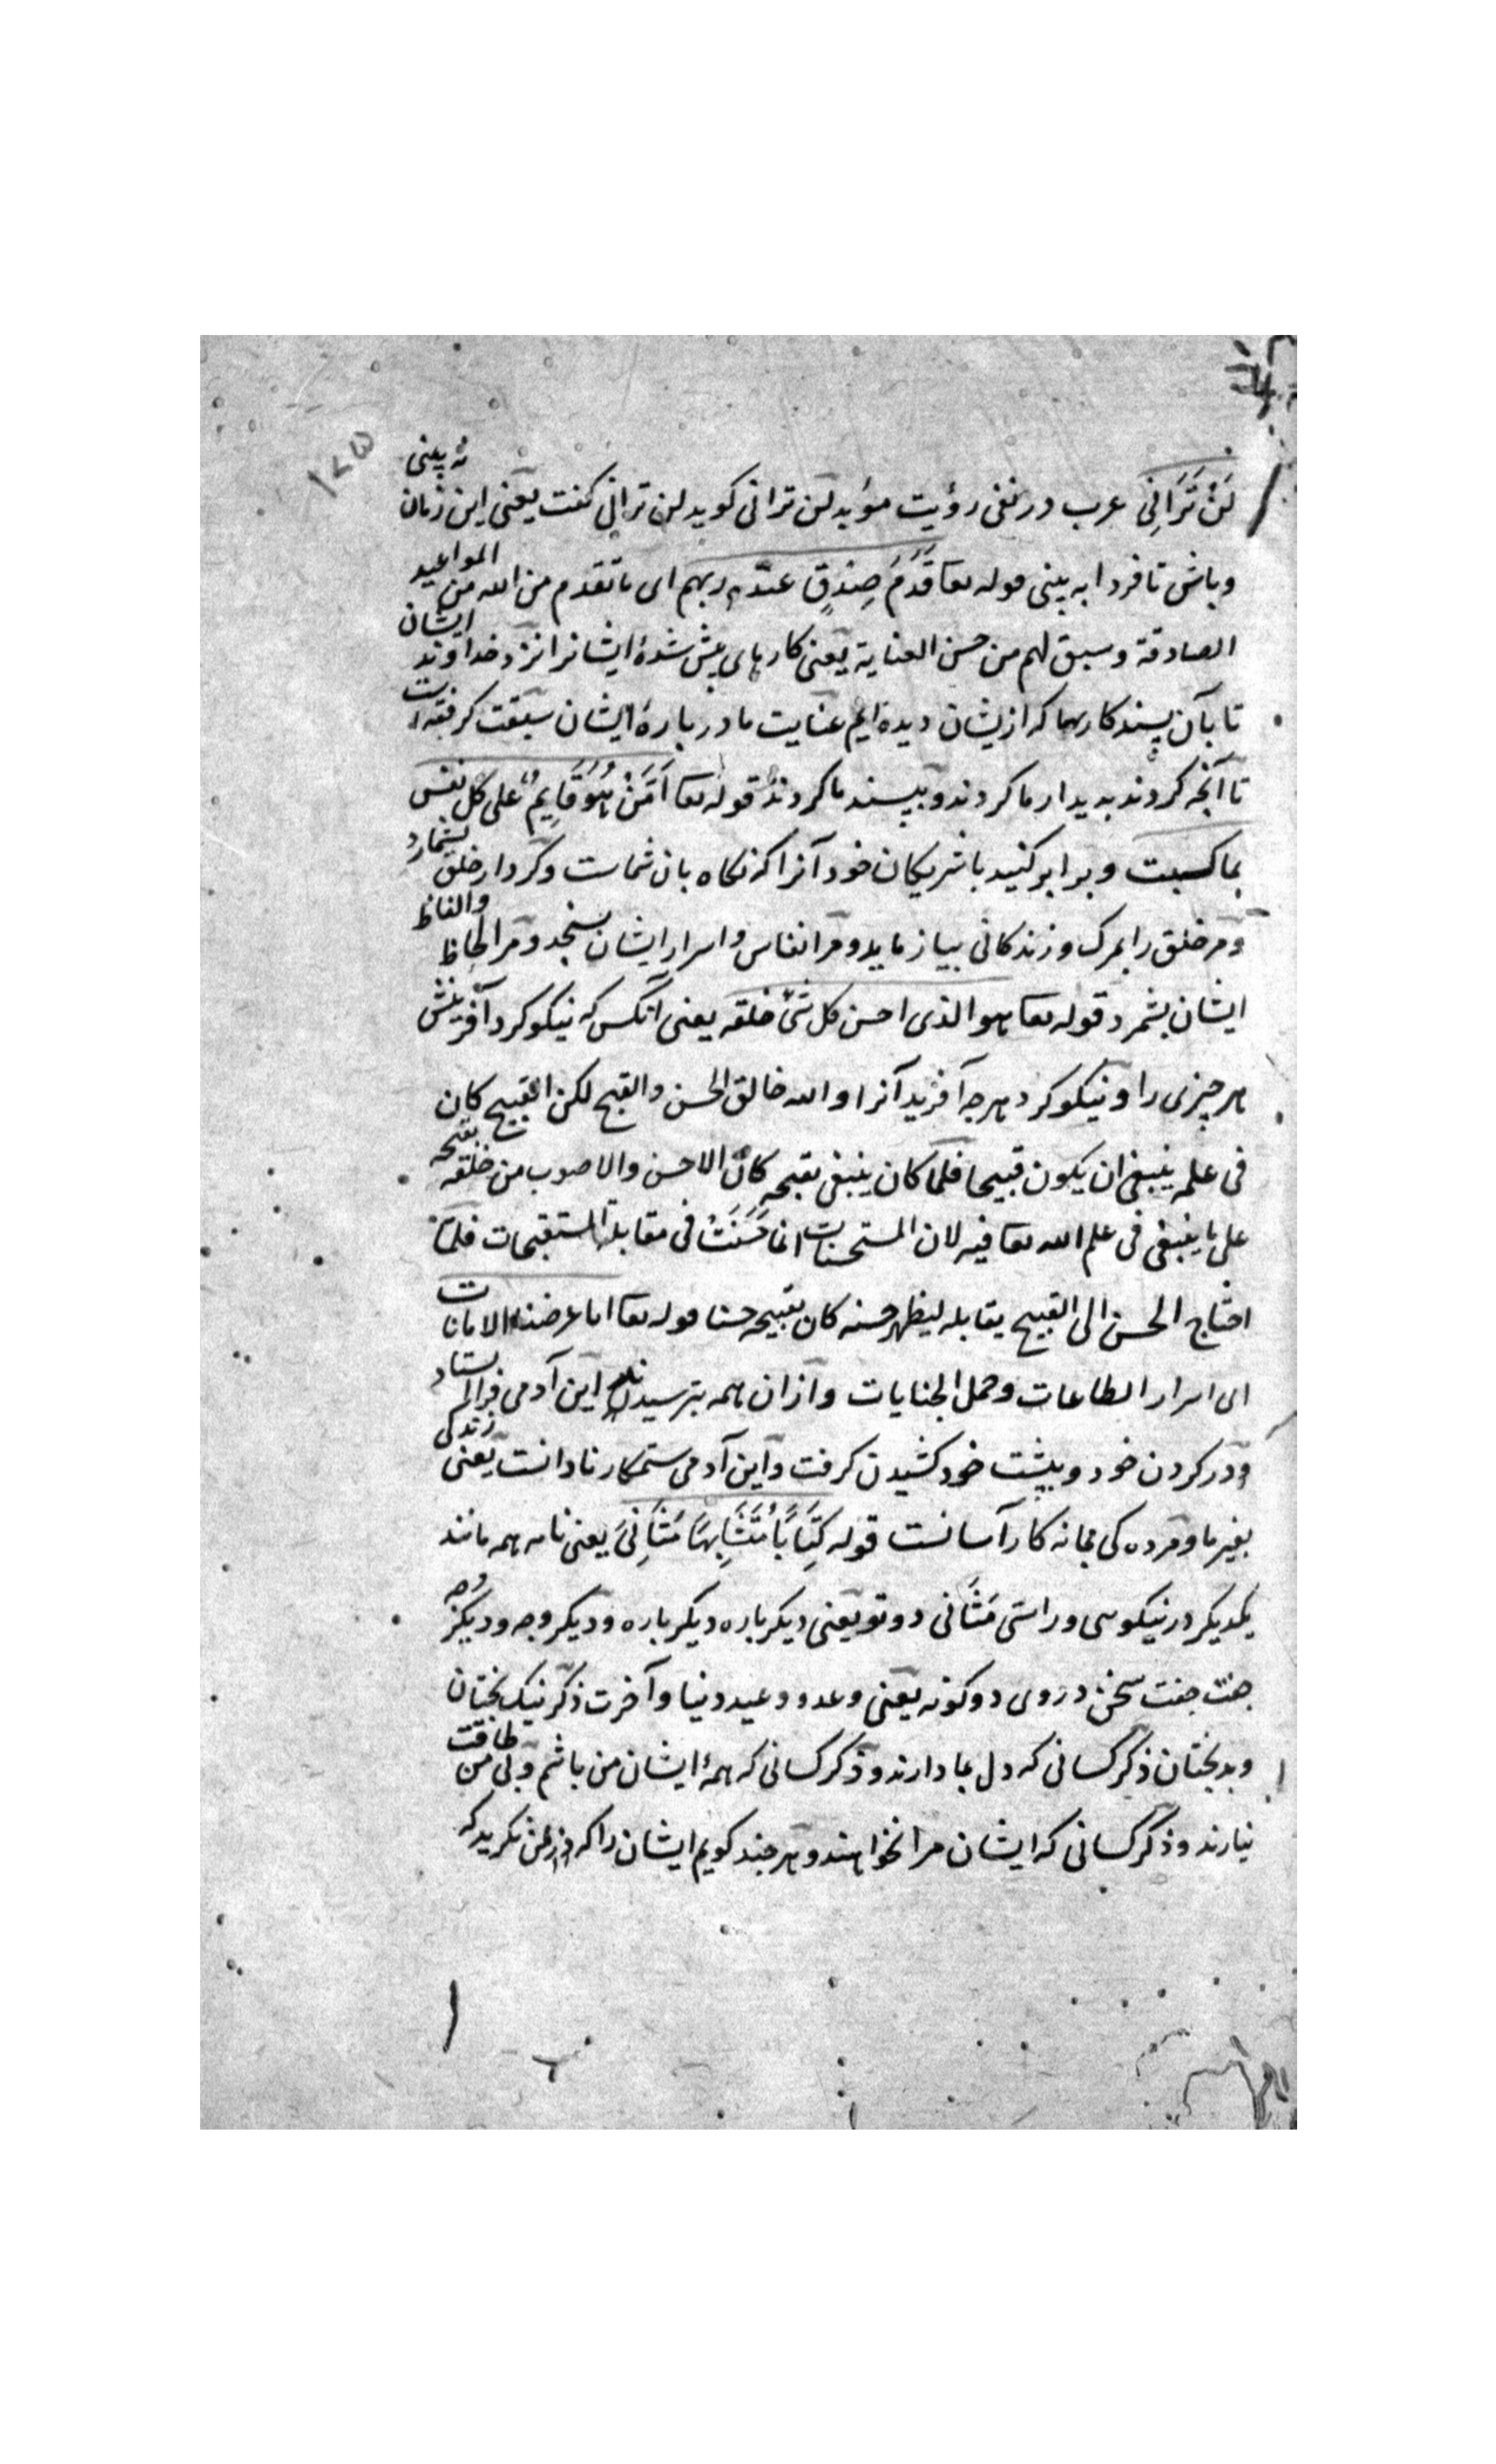 ۱۷۵
لَنْ تَرَانِی عرب در نفی رؤیت مؤبد لن ترانی کوید لن ترانی کفت یعنی این زمان نه بینی
و باش تا فردا به بینی قوله تعا قَدَمَ صِدْقٍ عند ربهم ای ما تقدم من الله من المواعید
الصادقة و سبق لهم من حسن العنایة یعنی کارهای پیش شدهٔ ایشانرا نزد خداوند ایشان
تا بآن پسند کارها که ازیشان دیده ایم عنایت ما دربارهٔ ایشان سبقت کرفته است
تا آنچه کردند بدیدار ما کردند و بپسند ما کردند قوله تعا اَفَمَنْ هُوَ قَایِمٌ علی کل نفس
بما کسبت و برابر کنید با شریکان خود آنرا که نکاه بان شماست و کردار خلق بشمارد
و مر خلق را بمرک و زندکانی بیازماید و مر انفاس و اسرار ایشان بسنجد و مر الحاظ والفاظ
ایشان بشمرد قوله تعا هو الذی احسن کل شیٔ خلقه یعنی آنکس که نیکو کرد آفرینش
هر چیزی را و نیکو کرد هرچه آفرید آنرا و الله خالق الحسن والقبح لکن القبیح کان
فی علمه ینبغی ان یکون قبیحا فلما کان ینبغی تقبحه کان الاحسن والاصوب من خلقه بقبحه
علی ما ینبغی فی علم الله تعا فیه لان المستحسنات انما حَسُنَتْ فی مقابلة المستقبحات فلما
احتاج الحسن الی القبیح یقابله لیظهر حسنه کان تقبیحه حسنا قوله تعا انا عرضنا الامانات
ای اسرار الطاعات وحمل الجنایات و از آن همه بترسیدند این آدمی فرا ستاد
و در کردن خود و بپشت خود کشیدن کرفت و این آدمی ستمکار نادانست یعنی زندکی
بغیر ما و مرده کی بمانه کار آسانست قوله کِتَابًا مُتَشَابِهًا مَثَانِیَ یعنی نامه همه مانند
یکدیکر در نیکویی و راستی مَثَانی دو تو یعنی دیکر باره دیکر باره و دیکر وجه و دیکر وجه
جفت جفت سخن در وی دو کونه یعنی وعد و وعید دنیا و آخرت ذکر نیک بختان
و بدبختان ذکر کسانی که دل بما دارند و ذکر کسانی که همهٔ ایشان من باشم و بی من طاقت
نیارند و ذکر کسانی که ایشان مرا نخواهند و هر چند کویم ایشان را که در من نکرید که